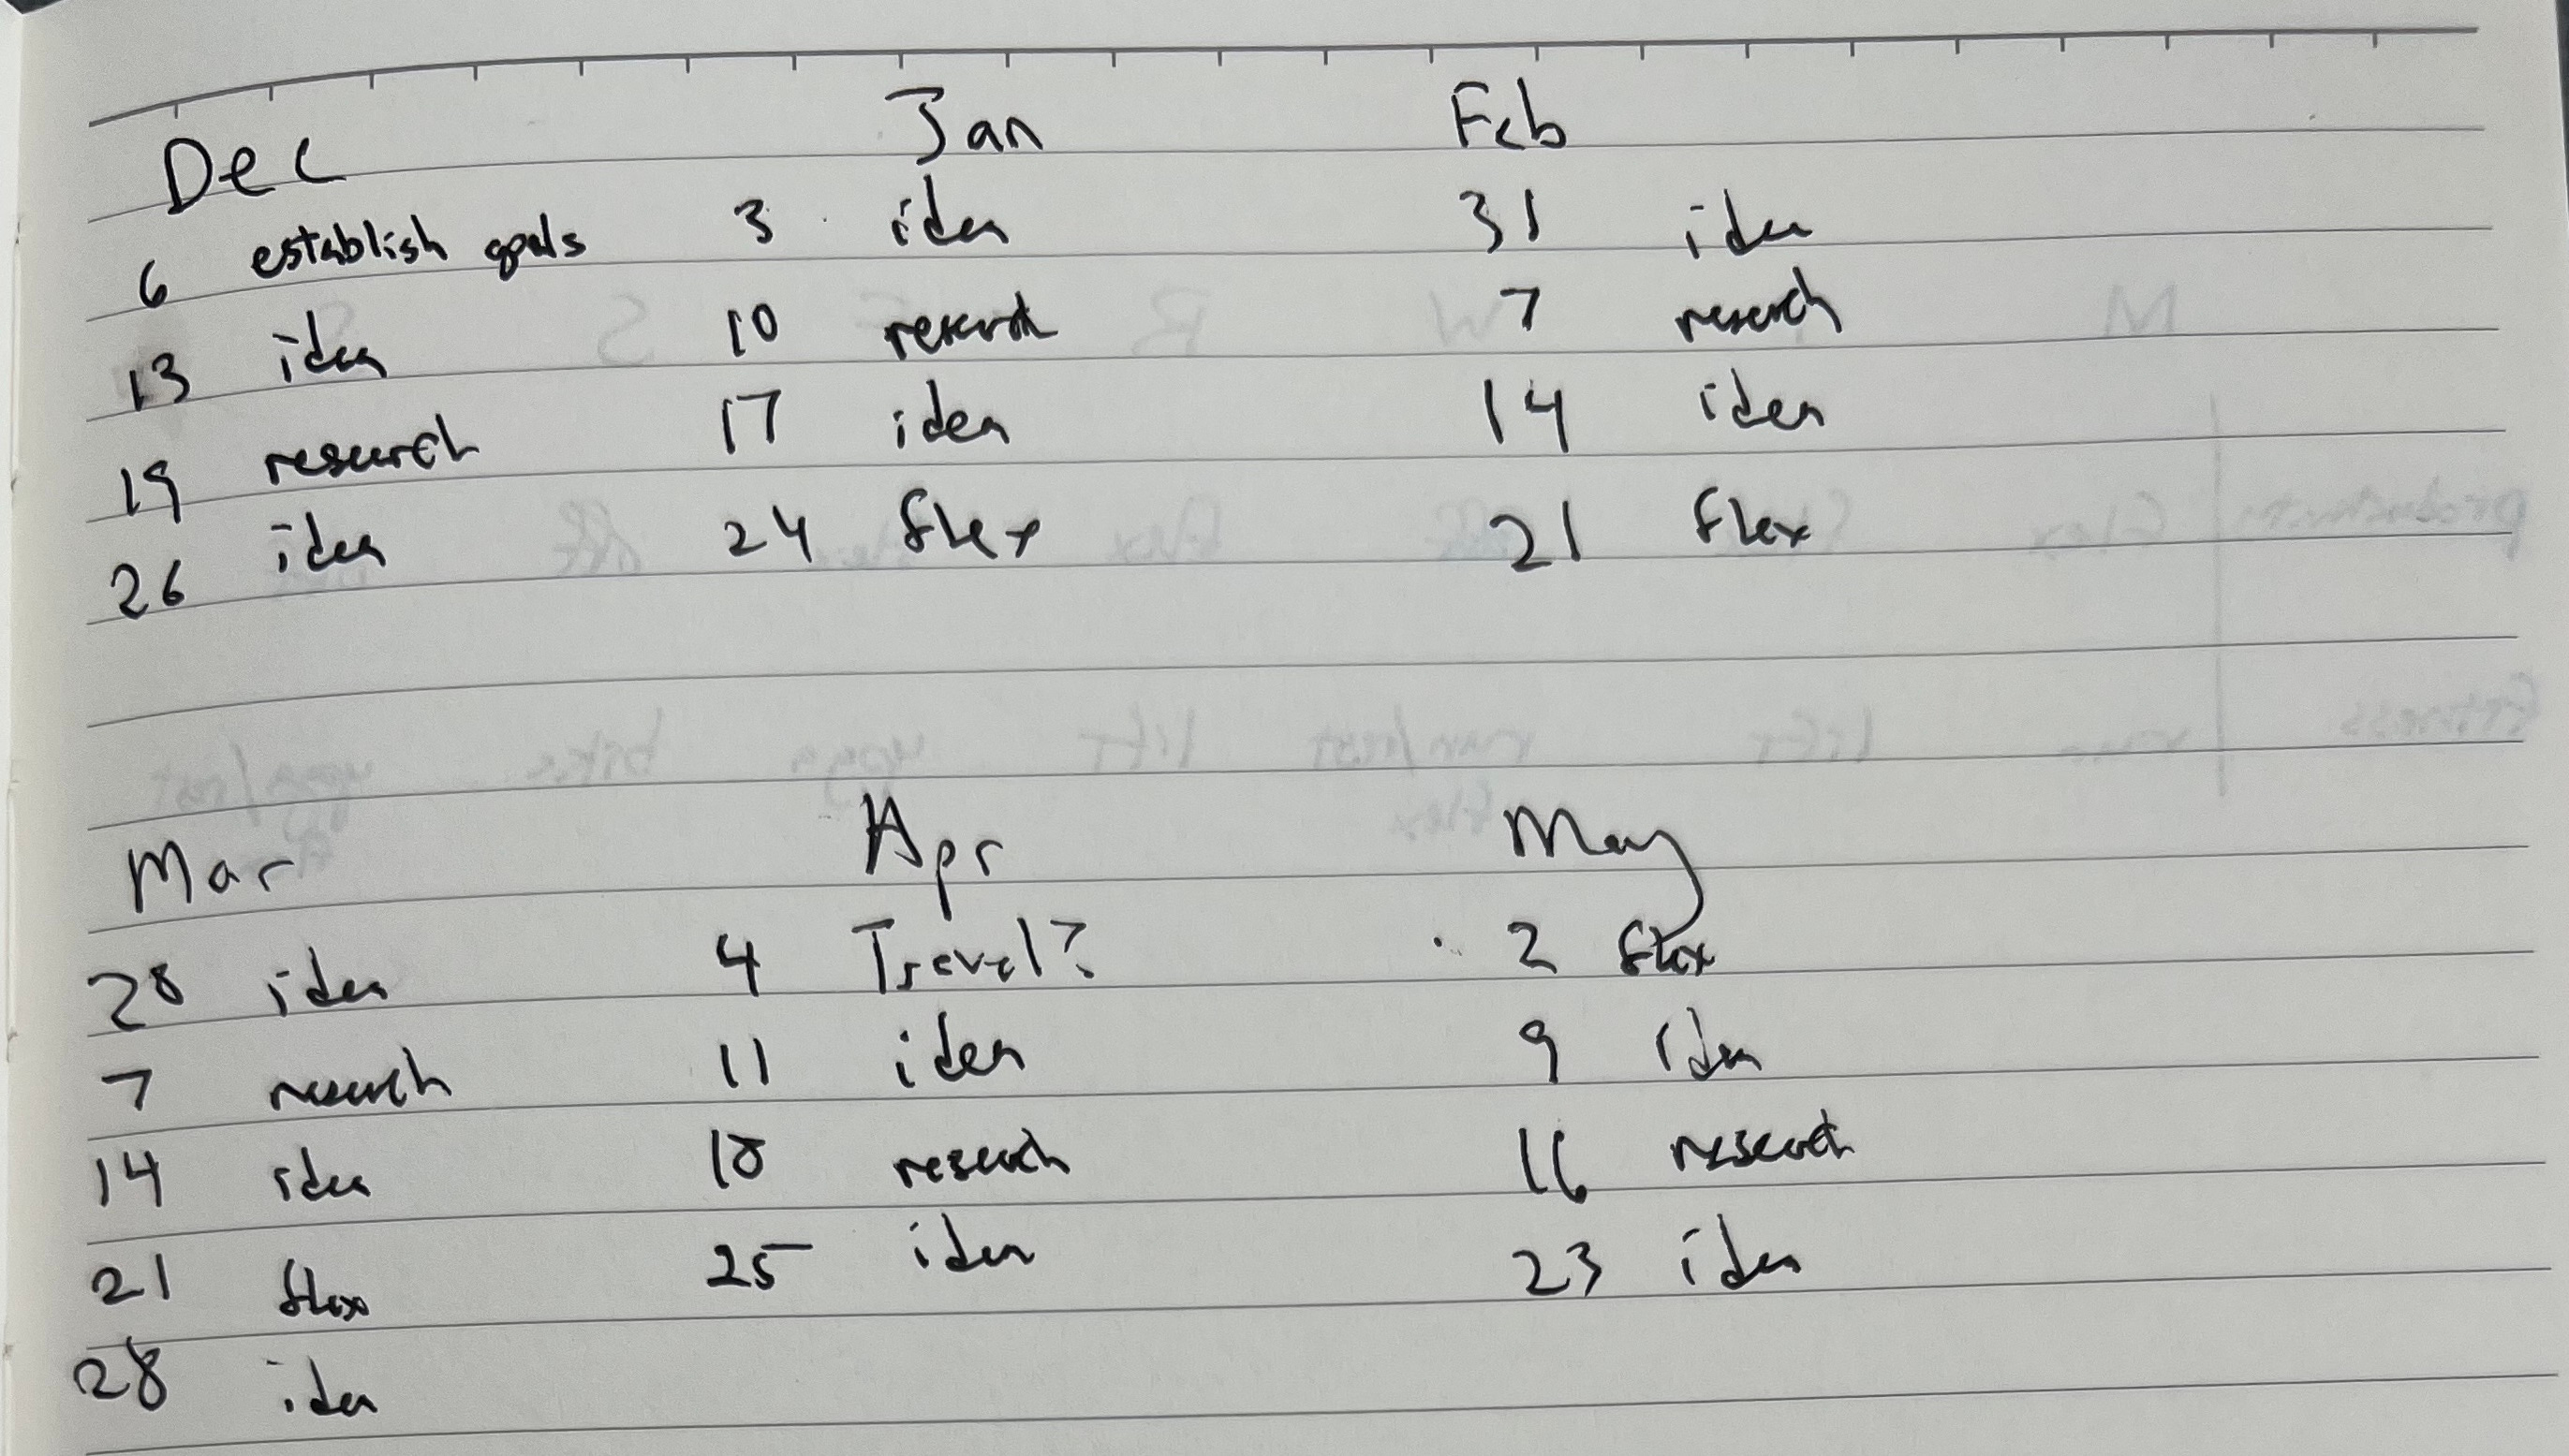 Dec Jan Feb
6 establish goals 3 idea 31 idea
13 idea 10 research 7 research
19 research 17 idea 14 idea
26 idea 24 flex 21 flex
Mar Apr May
28 idea 4 Travel? 2 flex
7 research 11 idea 9 idea
14 idea 18 research 16 research
21 flex 25 idea 23 idea
28 idea